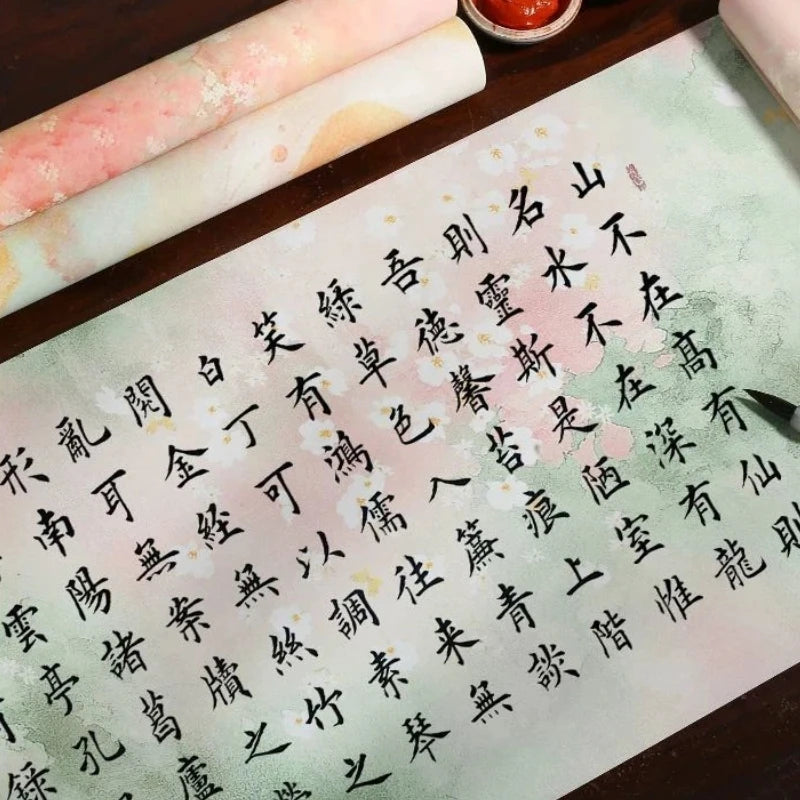 山不在高有仙則
名水不在深有龍
則靈斯是陋室惟
吾德馨苔痕上階
綠草色入簾青談
笑有鴻儒往来無
白丁可以調素琴
閱金經無絲竹之
亂耳無案牘之勞
形南陽諸葛廬
雲亭孔
錄